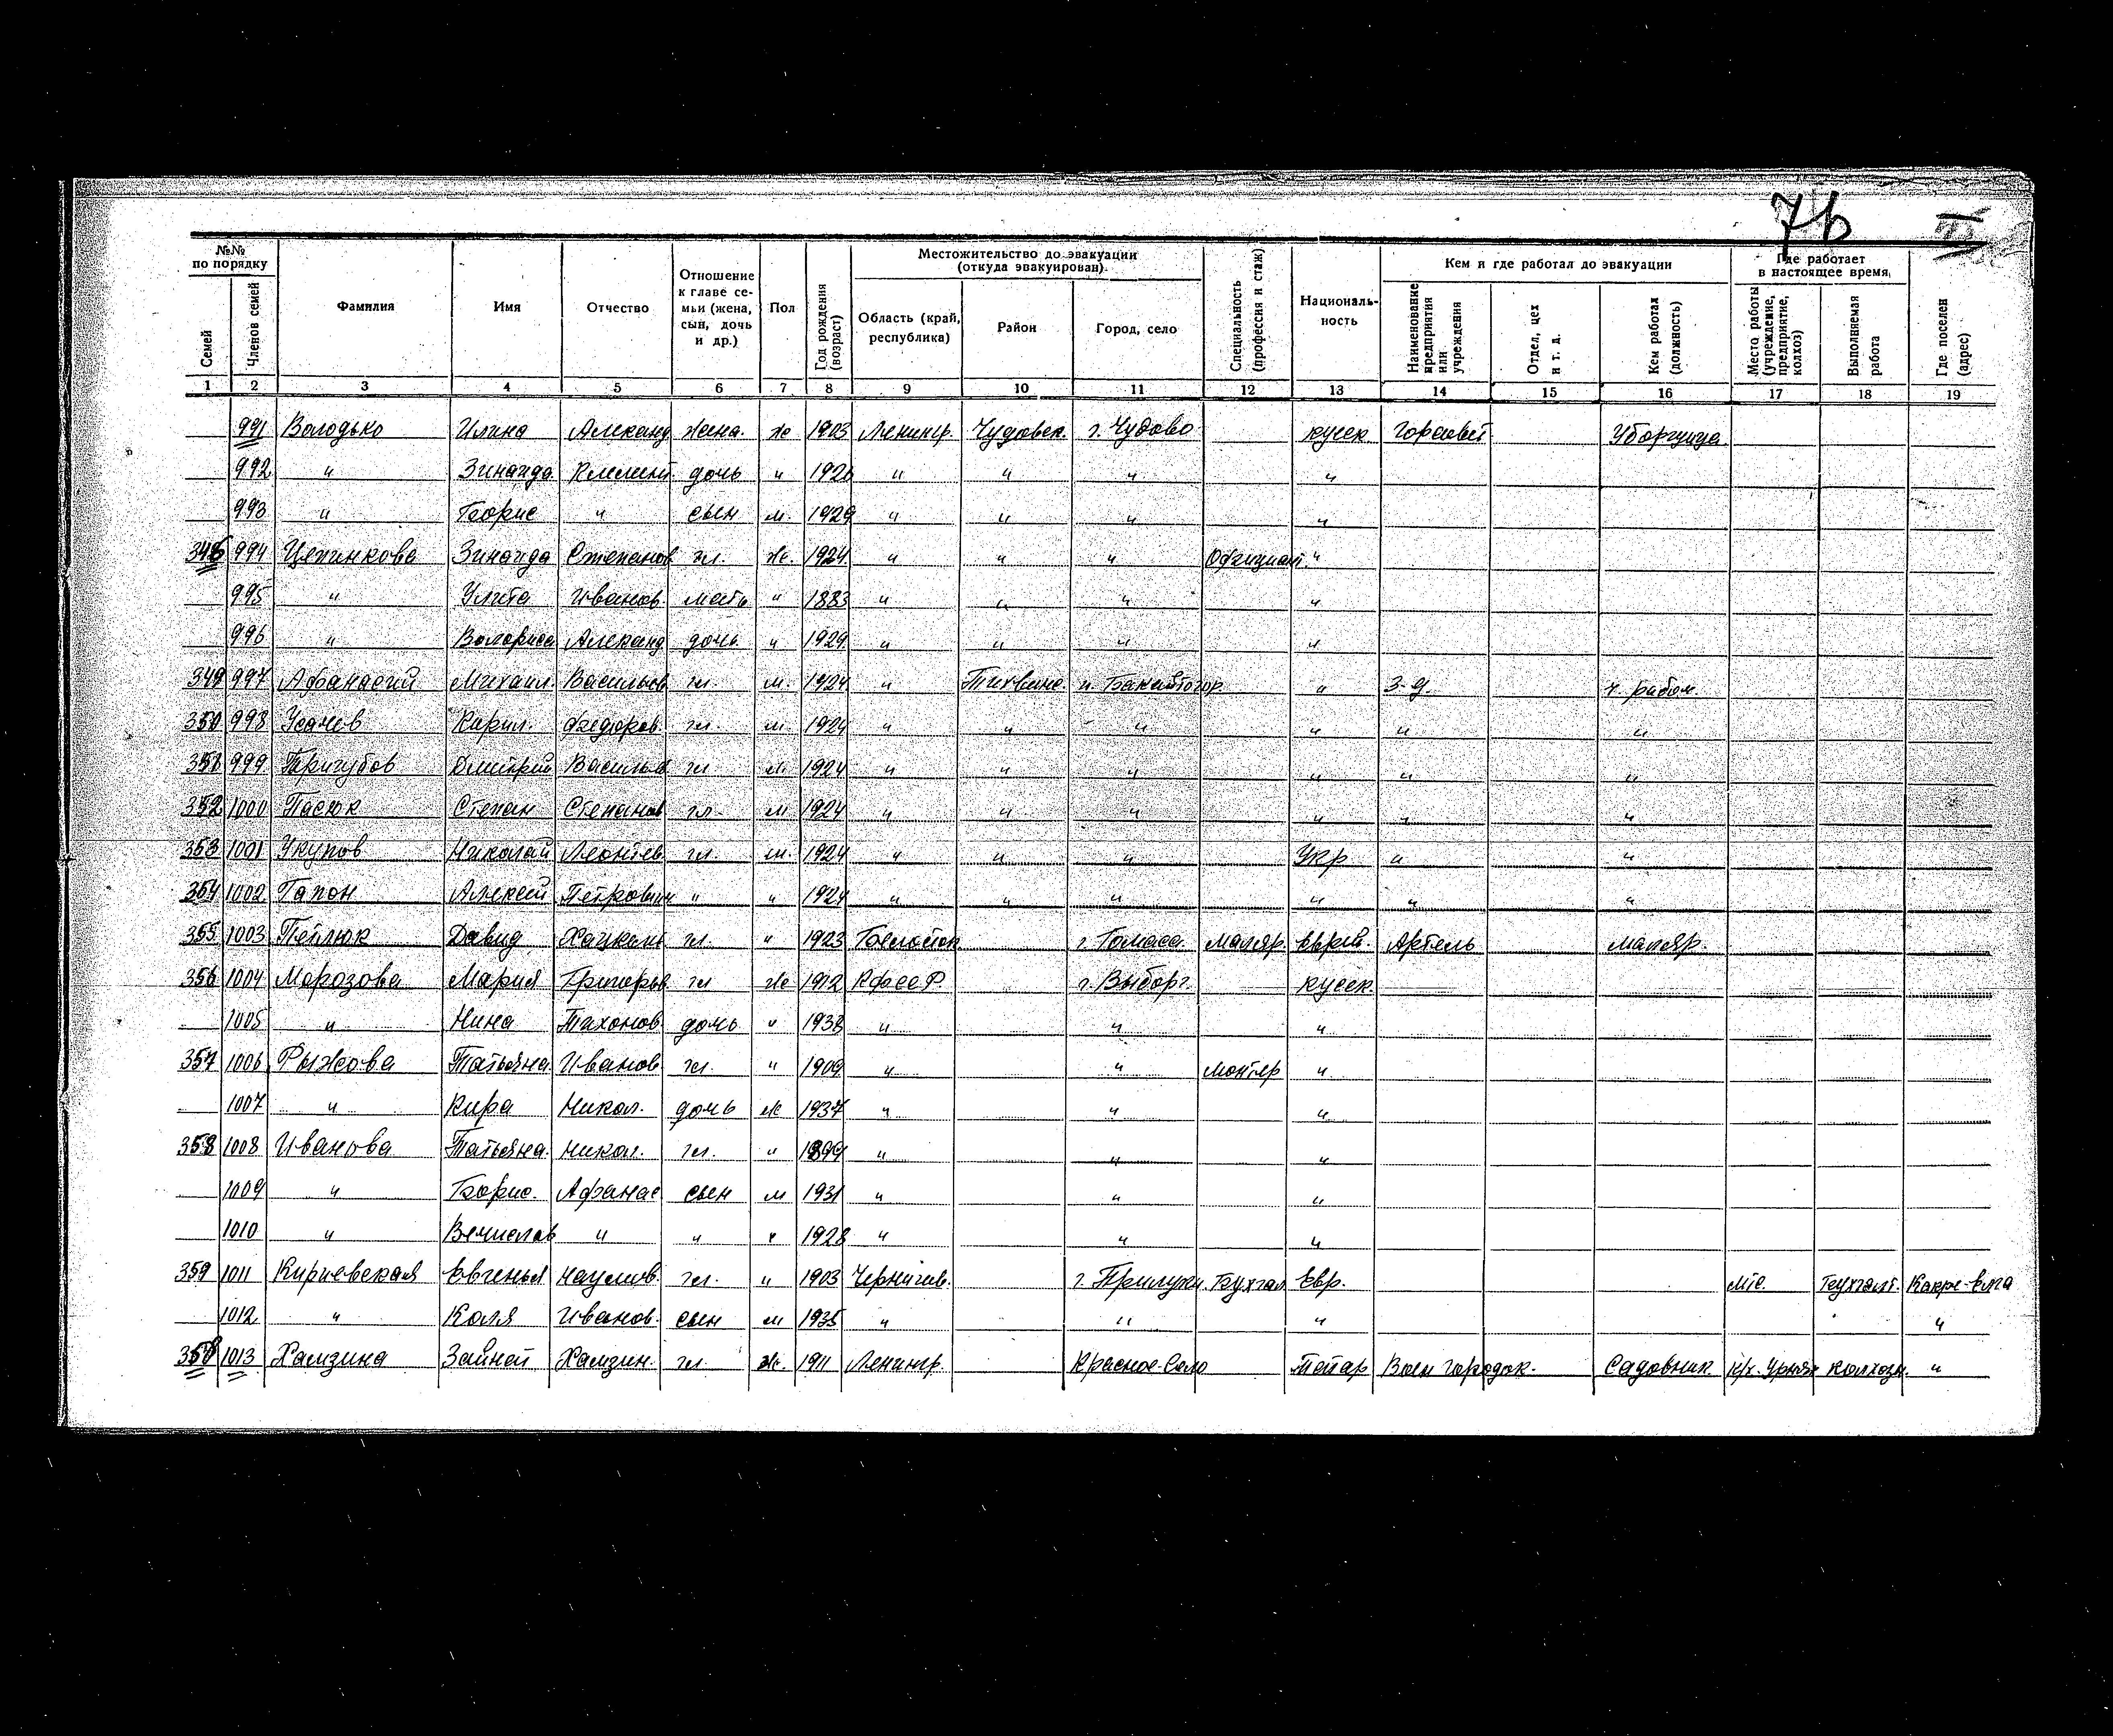 7b
№№ по порядку
Семей
Членов семей
Фамилия
Имя
Отчество
Отношение к главе семьи (жена, сын, дочь и др.)
Пол
Год рождения (возраст)
Местожительство до эвакуации (откуда эвакуирован)
Область (край, республика)
Район
Город, село
Специальность (профессия и стаж)
Националь-ность
Кем и где работал до эвакуации
Наименование предприятия или учреждения
Отдел, цех и т. д.
Кем работал (должность)
Где работает в настоящее время
Место работы (учреждение, предприятие, колхоз)
Выполняемая работа
Где поселен (адрес)
1 2 3 4 5 6 7 8 9 10 11 12 13 14 15 16 17 18 19
991 Володько Александ. жена. ж 1903 Ленингр. Чудовск. г. Чудово русск Горсовет Уборщица
992 " Зинаида Климент. дочь " 1926 " " " "
993 " Борис " сын м. 1929 " " " "
994 Цепинкова Зинаида Степанов гл. ж. 1924 " " " Официант. "
995 " Улита Иванов. мать " 1883 " " " "
996 " Александ дочь " 1929 " " " "
349 997 Афанасий Михаил Васильев гл. м. 1924 " Тихвине " з-д. ч. рабоч.
350 998 Усачев Кирил. Федоров. гл. м. 1924 " " " " " "
351 999 Тригубов Дмитрий Васильев гл м. 1924 " " " " " "
352 1000 Пасюк Степан Степанов гл. м 1924 " " " " " "
353 1001 Укупов Николай Леонтев. гл. м. 1924 " " " Укр " "
354 1002 Гапон Алексей Петрович " " 1924 " " " " " "
355 1003 Петлюк Давид гл. " 1923 маляр. еврей. Артель маляр.
356 1004 Морозова Мария Григорьев. гл ж 1912 КФССР г. Выборг. русск
1005 " Нина Тихонов дочь " 1938 " " "
357 1006 Рыжова Татьяна Иванов. гл. " 1909 " " монтер "
1007 " Кира Никол. дочь ж 1937 " " "
358 1008 Иванова Татьяна. Никол. гл. " 1899 " " "
1009 " Борис. Афанас сын м 1931 " " "
1010 " Вечислав " " " 1928 " " "
359 1011 Кириевская Евгенья Наумов. гл. " 1903 Чернигов. г. Прилуки. Бухгал. Евр. мтс. Бухгалт. Какре-Елга
1012 " Коля Иванов. сын м 1935 " " " "
1013 Хамзина Зайнап Хамзин. гл. ж. 1911 Ленингр. Красное Село Татар Воен городок. Садовник колхозн. "